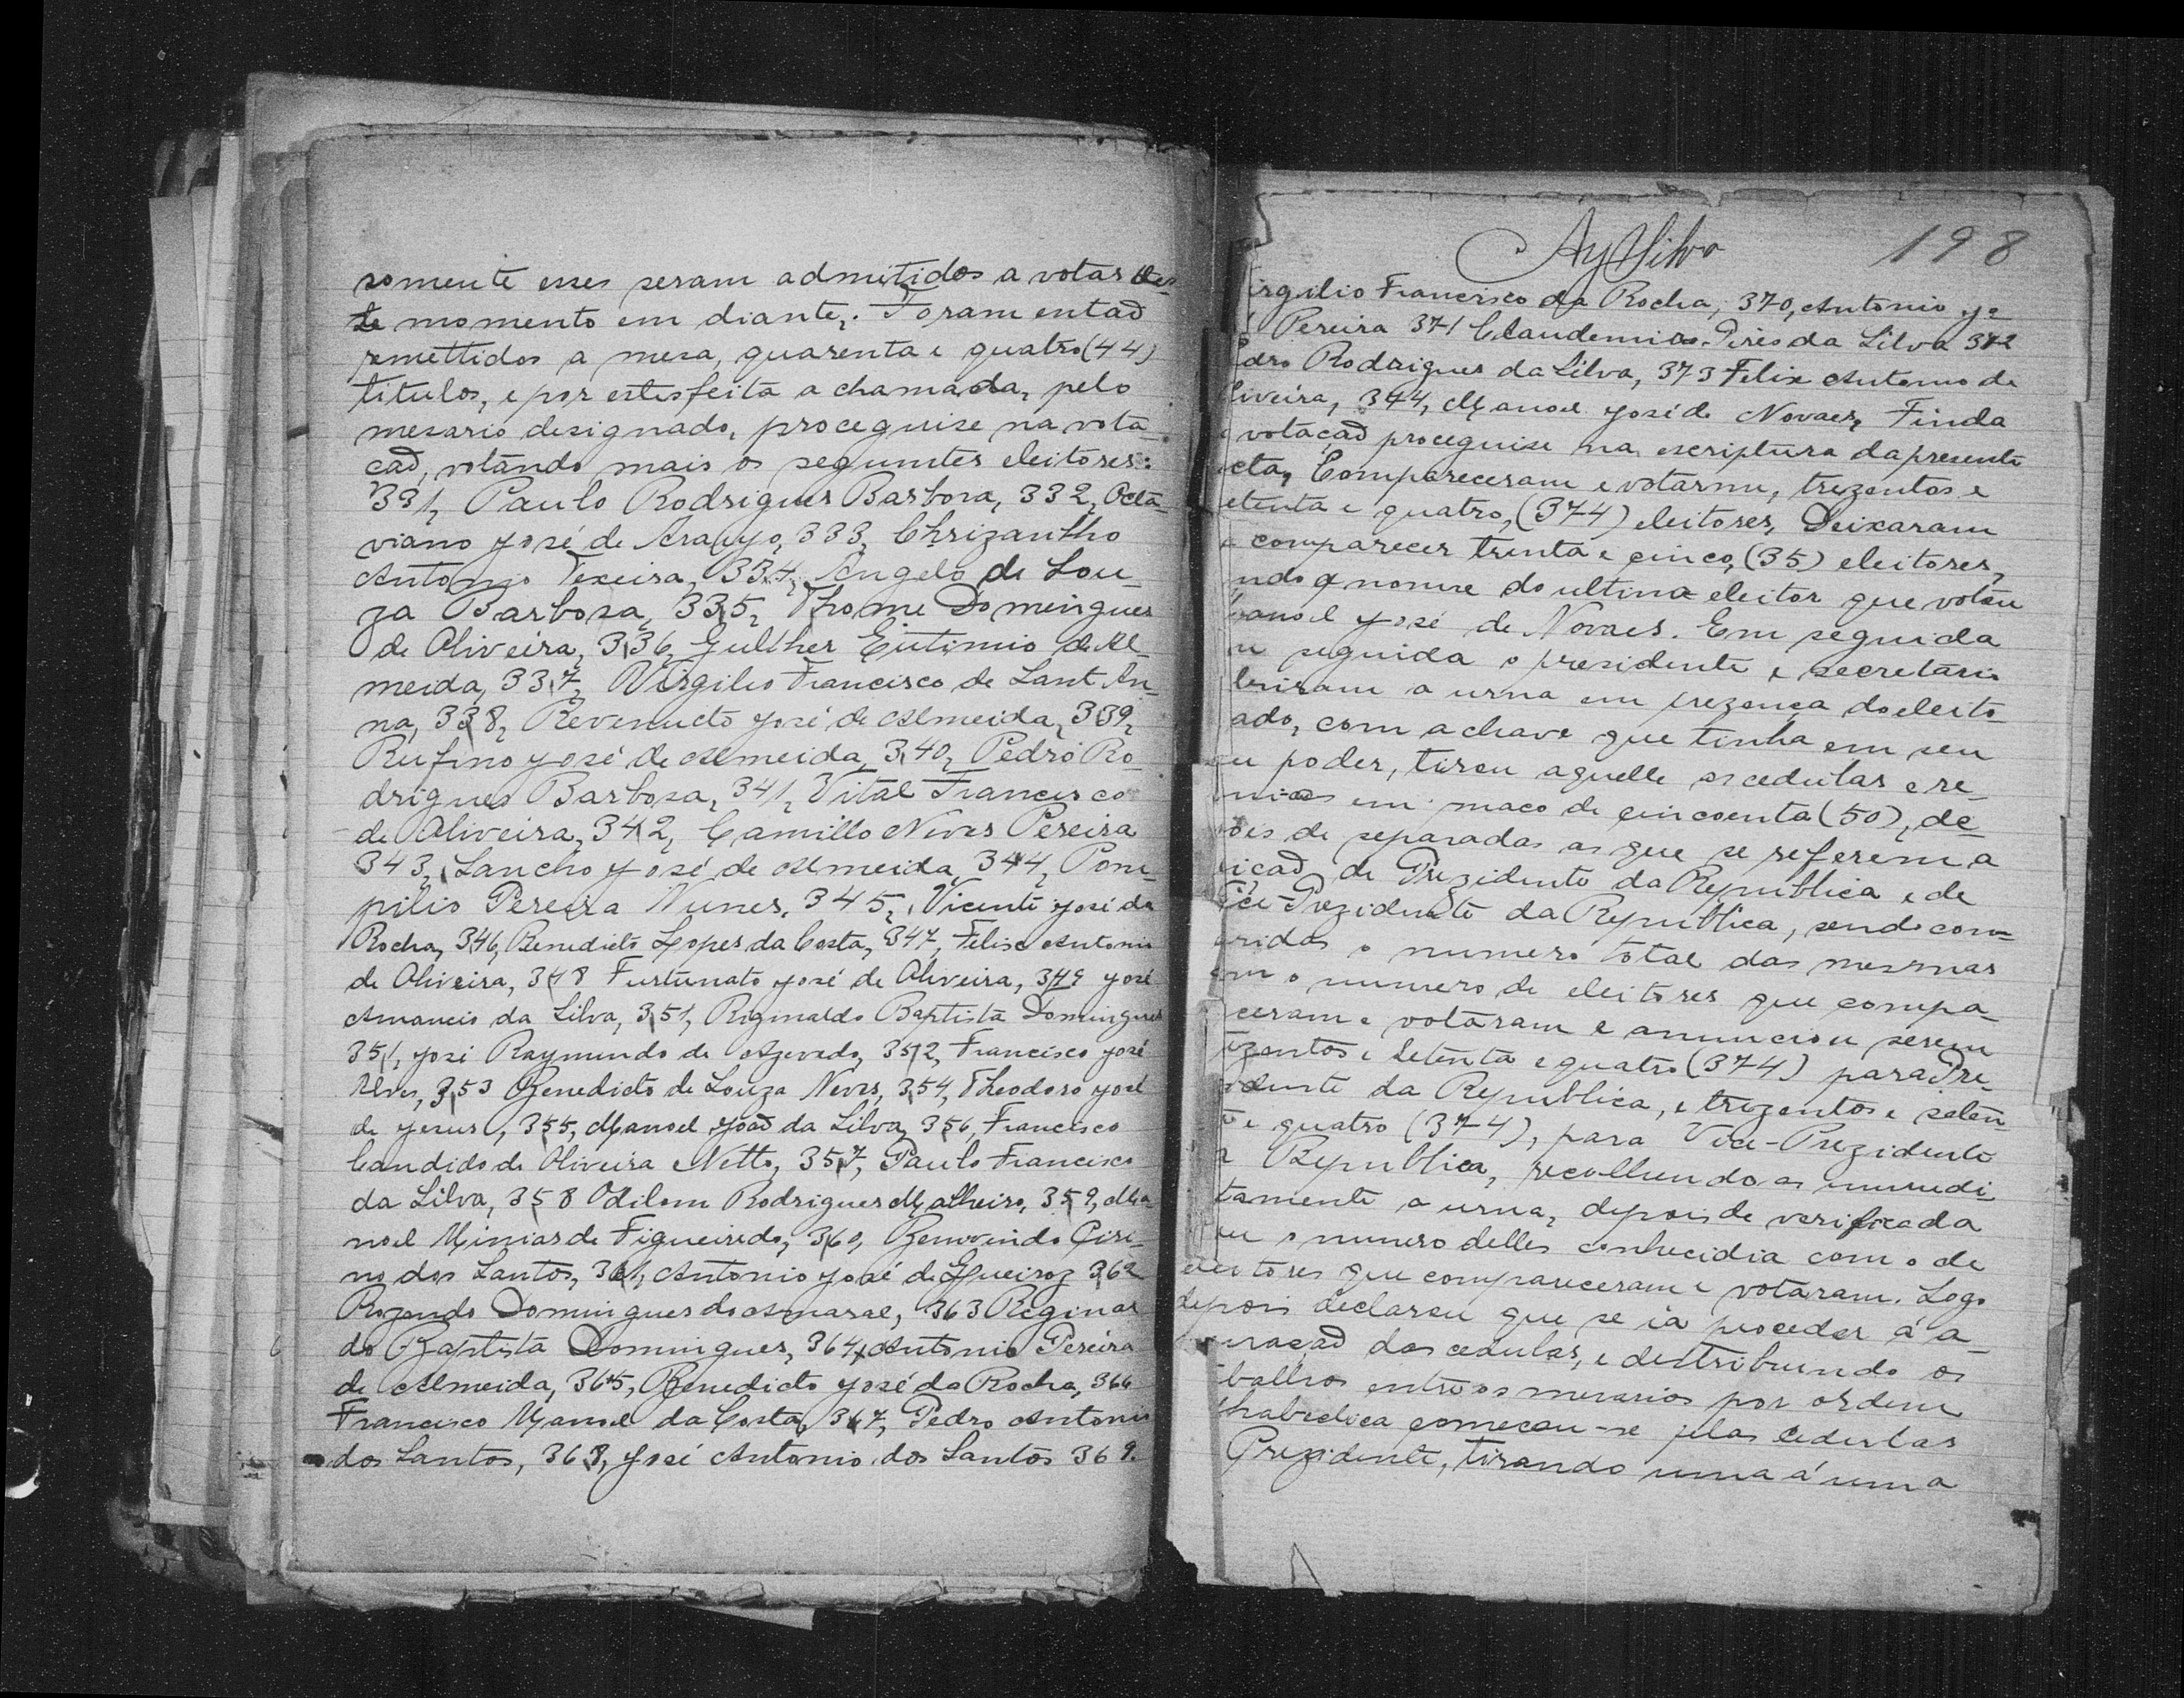 somente esses seram admitidos a votar des-
te momento em diante,. Foram entaõ
remettidos a mesa, quarenta e quatro (44)
titulos, e por estes feita a chamada, pelo
mesario designado, proceguise na vota-
caõ, votando mais os seguintes eleitores:
331, Paulo Rodrigues Barbosa, 332, Octa-
viano José de Araujo, 333, Chrizantho
Antonio Texeira, 334, Angelo de Sou-
za Barbosa, 335, Thome Domingues
de Oliveira, 336, Gulther Eutimio de Al-
meida, 337, Virgilio Francisco de Sant An-
na, 338, Revenucto José de Almeida, 339,
Rufino José de Almeida, 340, Pedro Ro-
drigues Barbosa, 341, Vital Francisco
de Oliveira, 342, Camillo Neves Pereira
343, Sancho José de Almeida, 344, Pom-
pilio Pereira Nunes, 345, Vicente José da
Rocha, 346, Benedicto Lopes da Costa, 347, Felix Antonio
de Oliveira, 348 Furtunato José de Oliveira, 349 José
Amancio da Silva, 351, Riginaldo Baptista Domingues
351, José Raymundo de Azevedo, 352, Francisco José
Alves, 353 Benedicto de Souza Neves, 354, Theodoro José
de Jesus, 355, Manoel Joaõ da Silva, 356, Francisco
Candido de Oliveira Netto, 357, Paulo Francisco
da Silva, 358 Odilom Rodrigues Malheiro, 359, Ma-
noel Minias de Figueiredo, 360, Bemvindo Ciri-
no dos Santos, 361, Antonio José de Queiroz 362
Rozendo Domingues do Amaral, 363 Reginal
do Baptista Domingues, 364, Antonio Pereira
de Almeida, 365, Benedicto José da Rocha, 366
Francisco Manoel da Costa, 367, Pedro Antonio
dos Santos, 368, José Antonio dos Santos 369.
AySilva 198
irgilio Francisco da Rocha, 370, Antonio Jo-
Pereira 371 Claudemiro Pires da Silva 372
edro Rodrigues da Silva, 373 Felix Antonio de
liveira, 374, Manoel José de Novaes, Finda
votaçaõ proceguise na escriptura da presente
cta, Compareceram e votarmn, trezentos e
etenta e quatro, (374) eleitores, Deixaram
comparecer trinta e cinco, (35) eleitores,
ndo o nome do ultimo eleitor que votou
anoel José de Novaes. Em seguida
m seguida o presidente e secretario
briram a urna em prezença do eleito-
ado, com a chave que tinha em seu
eu poder, tirou aquelle as cedulas e re-
unios em maco de cincoenta (50), de-
pois de separadas as que se referem a
eiçaõ de Prezidente da Republica e de
ice-Prezidente da Republica, sendo com-
eridas o numero total das mesmas
om o numero de eleitores que compa-
ceram e votaram e anunciou serem
ezentos e setenta e quatro (374) para Pre-
idente da Republica, e trezentos e seten-
ta e quatro (374), para Vice-Prezidente
a Republica, recolhendo as immedi
tamente a urna, depois de verificada
ue o numero delles conhecidia com o de
eleitores que compareceram e votaram. Logo
depois declarou que se ia proceder á a-
puraçaõ das cedulas, e destribuindo os
balhos entre os mesarios por ordem
phabedica começou-se pelas cedulas
Prezidente, tirando uma á uma